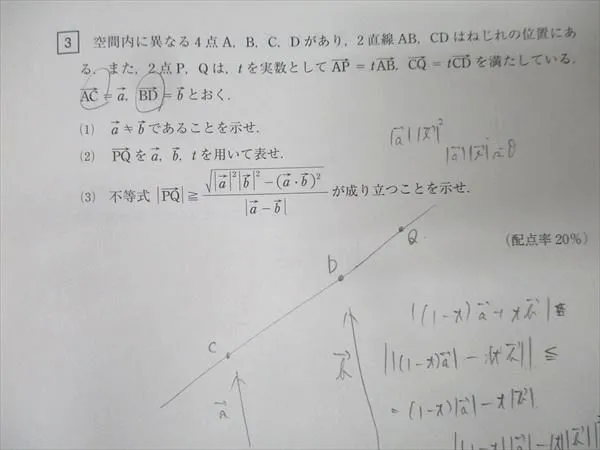 3 空間内に異なる4点A, B, C, Dがあり, 2直線AB, CDはねじれの位置にあ
る. また, 2点P, Qは, tを実数として $\overrightarrow{AP} = t\overrightarrow{AB}$, $\overrightarrow{CQ} = t\overrightarrow{CD}$ を満たしている.
$\overrightarrow{AC} = \vec{a}$, $\overrightarrow{BD} = \vec{b}$ とおく.
(1) $\vec{a} \neq \vec{b}$ であることを示せ.
(2) $\overrightarrow{PQ}$ を $\vec{a}$, $\vec{b}$, t を用いて表せ.
(3) 不等式 $|\overrightarrow{PQ}| \geqq \dfrac{\sqrt{|\vec{a}|^2|\vec{b}|^2 - (\vec{a}\cdot\vec{b})^2}}{|\vec{a} - \vec{b}|}$ が成り立つことを示せ.
(配点率20%)
Q
D
C
$\vec{a}$
$\vec{b}$
$|(1-t)\vec{a} + t\vec{b}|$
$= (1-t)|\vec{a}| - t|\vec{b}|$